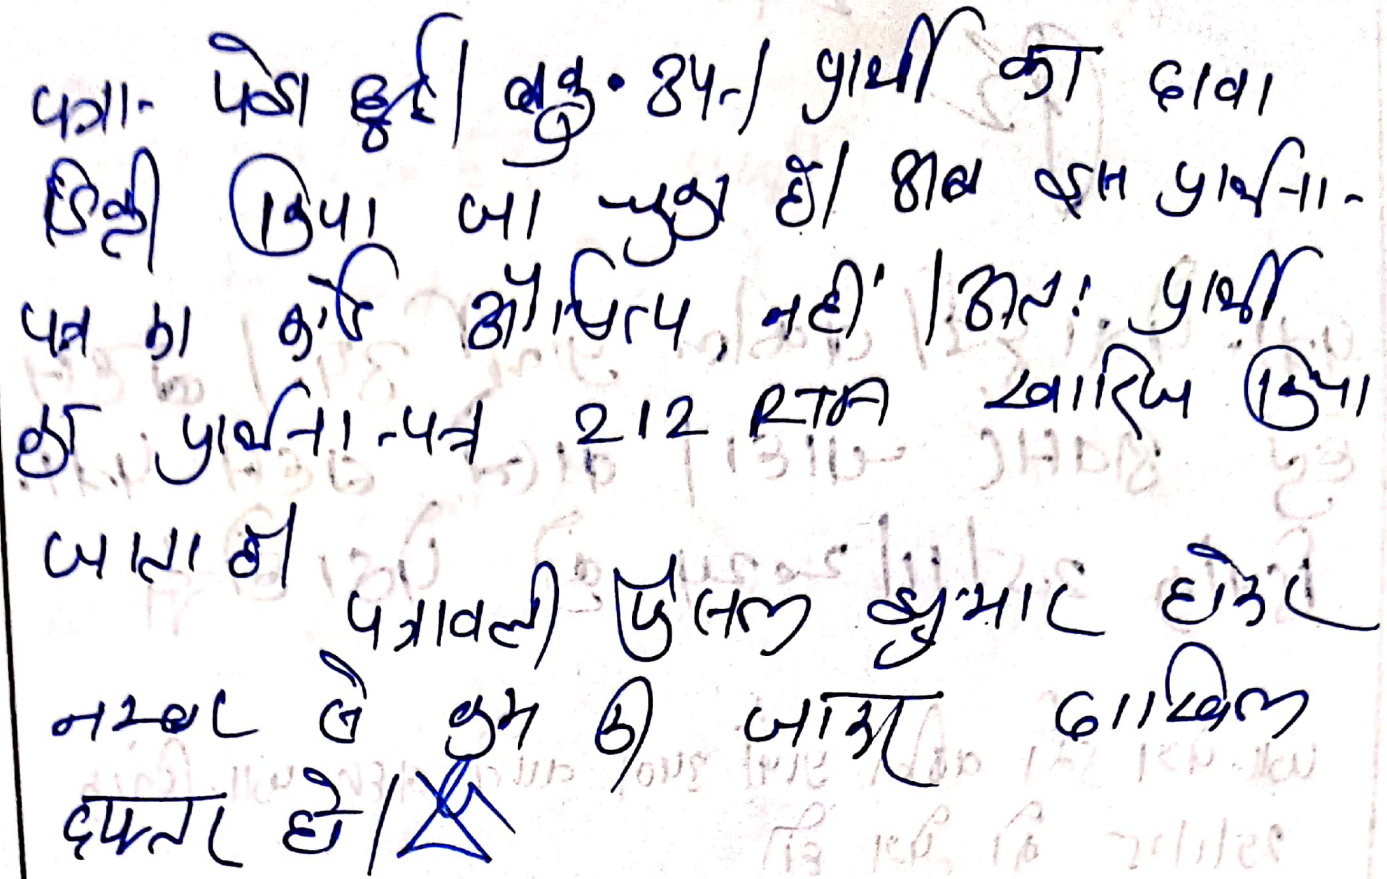 पत्रा- पेश हुई। वकु. उप.। प्रार्थी का दावा
डिक्री किया जा चुका है। अब इस प्रार्थना-
पत्र का कोई औचित्य नहीं। अतः प्रार्थी
का प्रार्थना-पत्र 212 RTA खारिज किया
जाता है।
पत्रावली फैसल शुमार होकर
नम्बर से कम की जाकर दाखिल
दफ्तर हो।